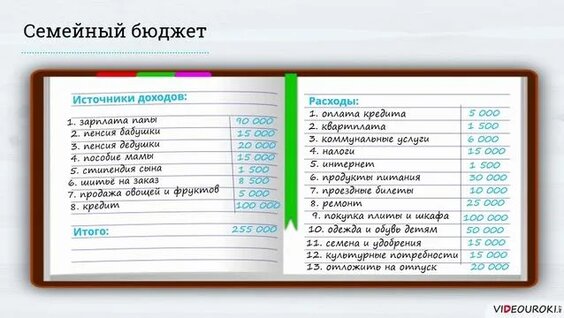 Семейный бюджет
Источники доходов:
1. зарплата папы 90 000
2. пенсия бабушки 15 000
3. пенсия дедушки 20 000
4. пособие мамы 15 000
5. стипендия сына 1 500
6. шитьё на заказ 8 500
7. продажа овощей и фруктов 5 000
8. кредит 100 000
Итого: 255 000
Расходы:
1. оплата кредита 5 000
2. квартплата 1 500
3. коммунальные услуги 6 000
4. налоги 15 000
5. интернет 1 500
6. продукты питания 30 000
7. проездные билеты 10 000
8. ремонт 25 000
9. покупка плиты и шкафа 100 000
10. одежда и обувь детям 50 000
11. семена и удобрения 15 000
12. культурные потребности 15 000
13. отложить на отпуск 20 000
VIDEOUROKI